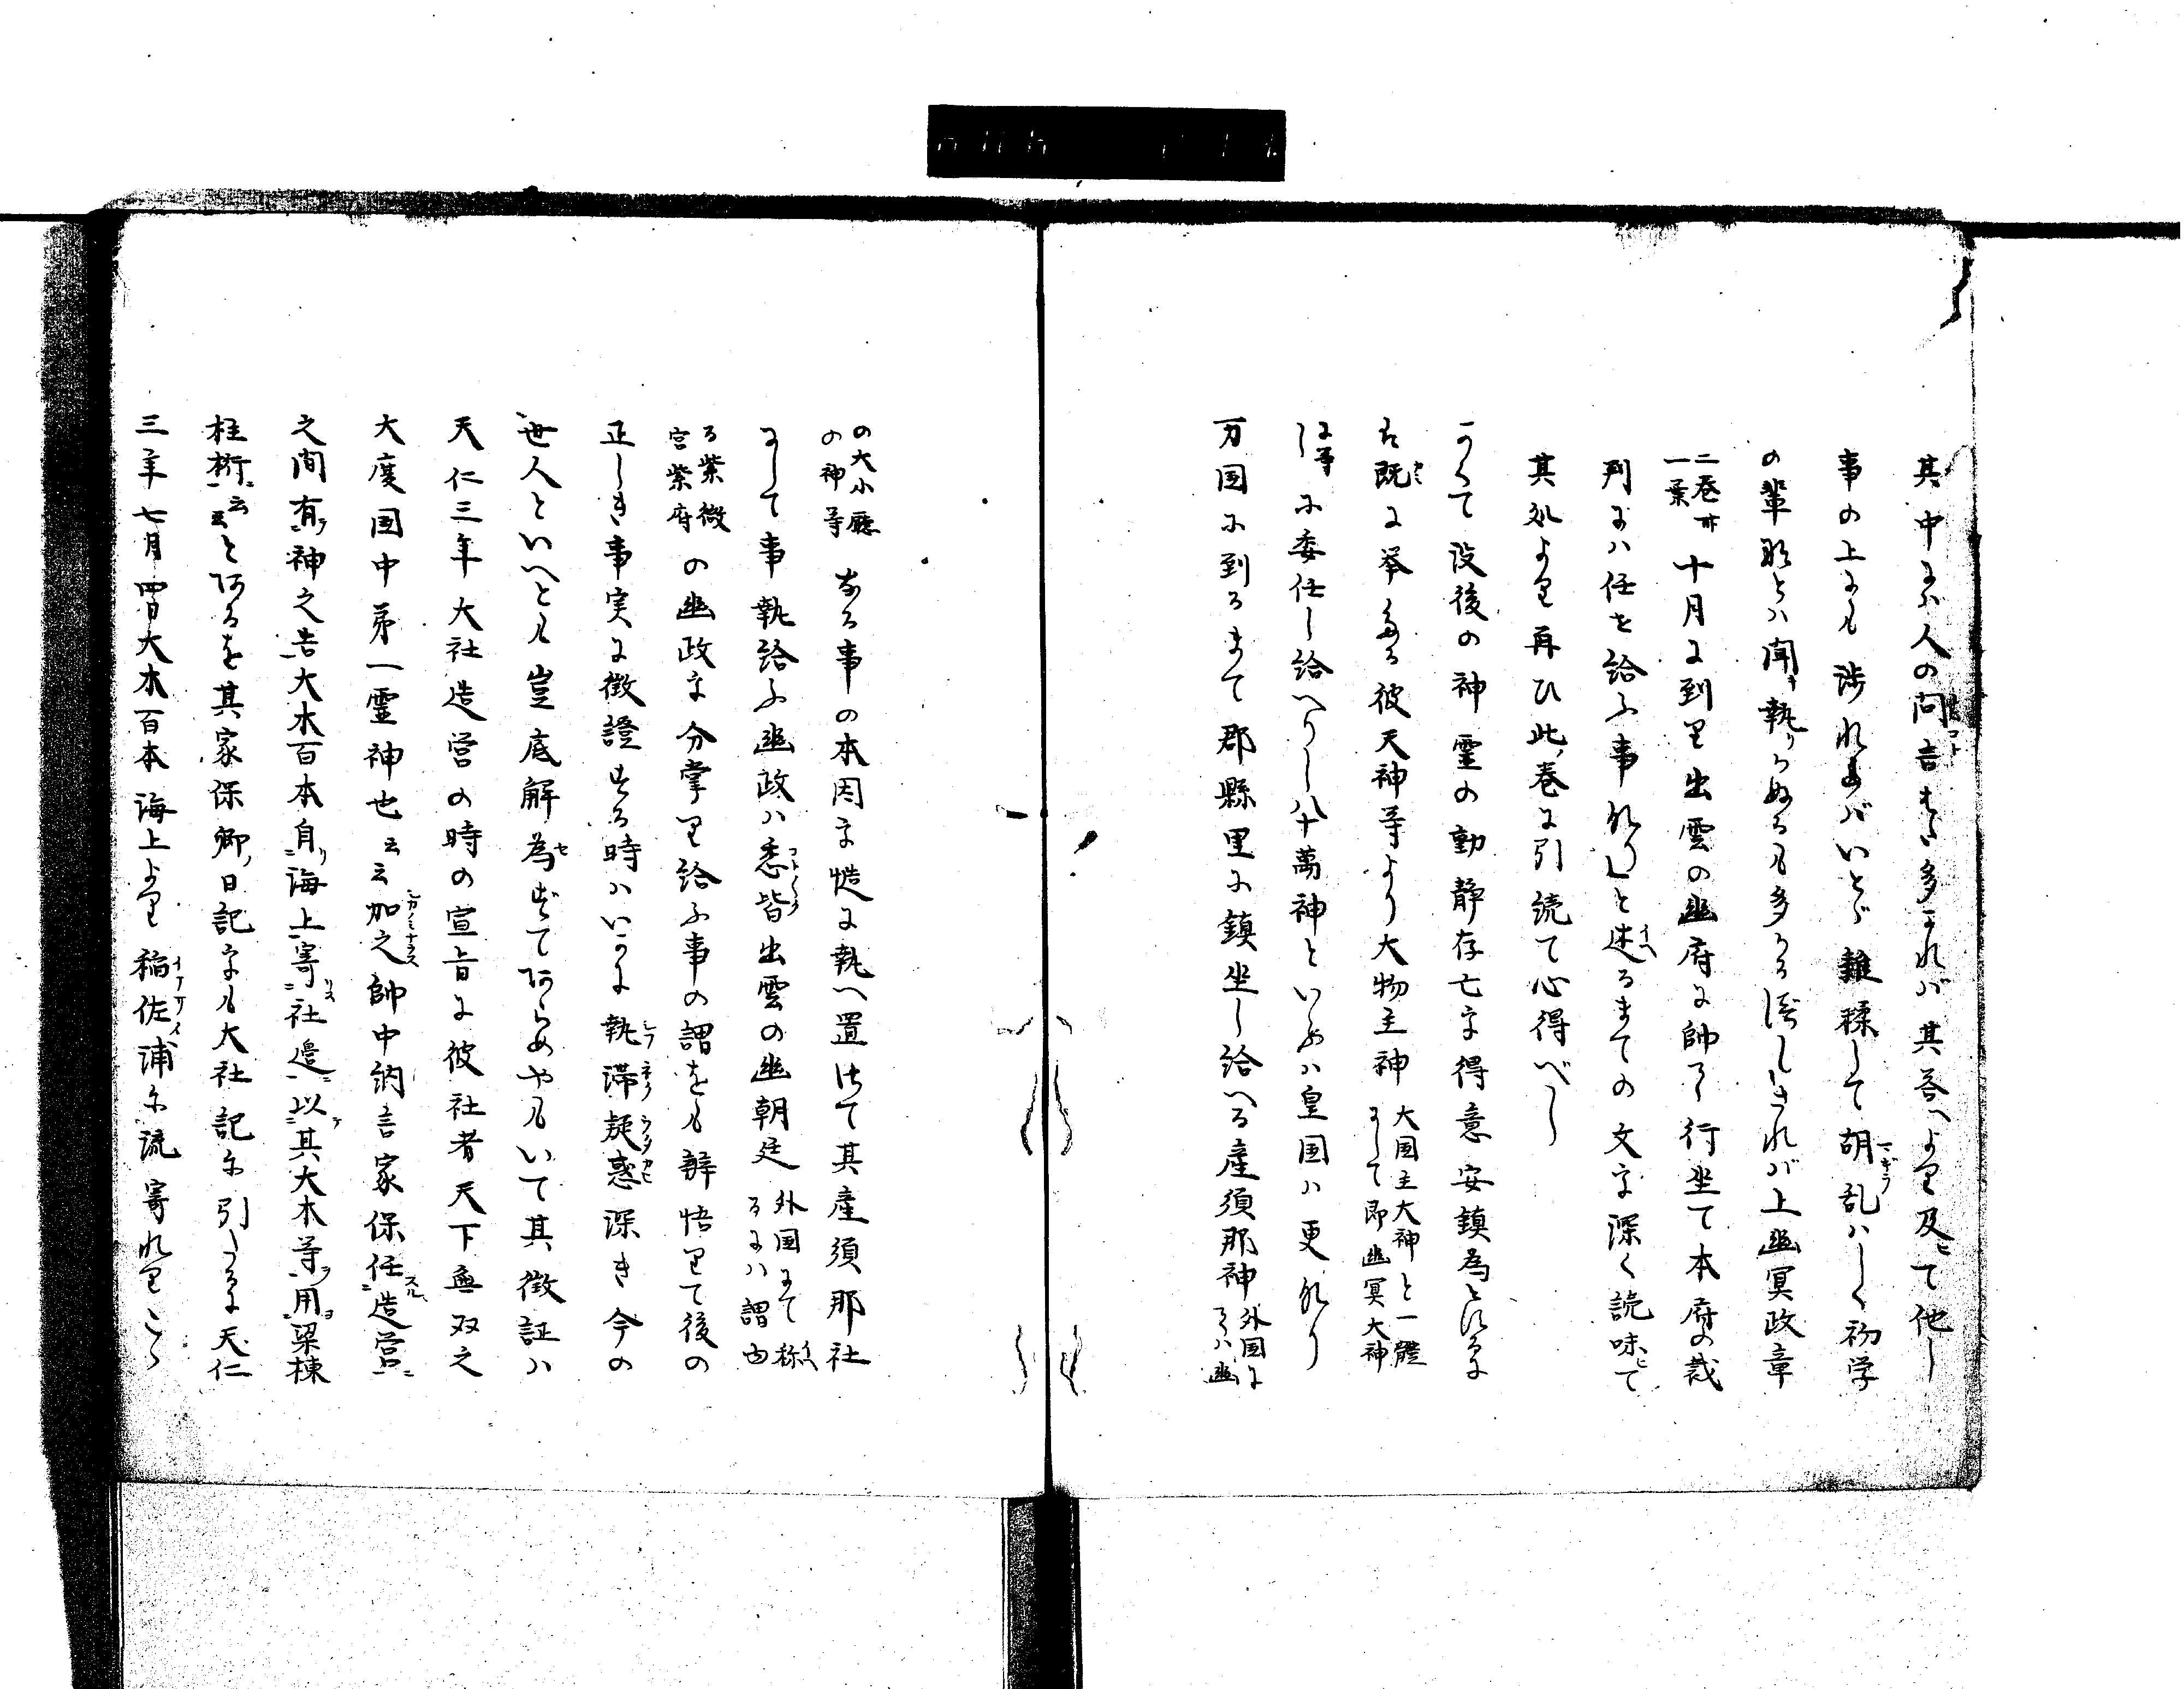 其中には人の問言もいと多かれバ其答へより及びて他し
事の上にも渉れゝバいとゞ雑糅して胡乱ハしく初学
の輩などハ聞執りかぬるも多かるべしされバ上幽冥政章
二巻廿一葉 十月に到り出雲の幽府に帥て行坐て本府の裁
判にハ任を給ふ事なりと述るまての文字深く読味ひて
其処より再ひ此巻に引続て心得べし
かくて没後の神霊の動静存亡を得意安鎮為とに
は既に挙たる彼天神等より大物主神 大国主大神と一體にして即幽冥大神
に等に委任し給へりし八十萬神といふハ皇国ハ更なり
万国に到るまて郡縣里に鎮坐し給へる産須那神 外国にてハ幽
の大小廳の神等 なる事の本因を慥に執へ置はて其産須那社
にして事執給ふ幽政ハ悉皆出雲の幽朝廷 外国にて称るにハ謂ゆ
る紫微宮紫府 の幽政を分掌り給ふ事の謂をも解悟りて後の
正しき事実に徴證する時ハいかに執滞疑惑深き今の
世人といへとも豈底解為せずてあらめやもいて其徴証ハ
天仁三年大社造営の時の宣旨に彼社者天下無双之
大廈国中第一霊神也云云加之帥中納言家保任造営
之間有神之告大木百本自海上寄社邊以其大木等用梁棟
柱桁云云とあるを其家保卿ノ日記にも大社記に引たるに天仁
三年七月四日大木百本海上より稲佐浦に流寄れりこゝ